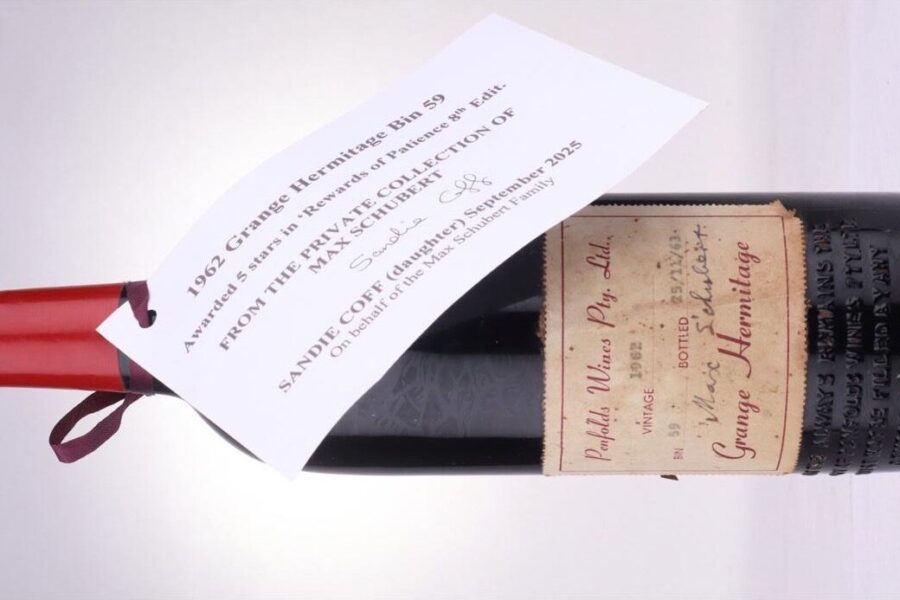 1962 Grange Hermitage Bin 59
Awarded 5 stars in ‘Rewards of Patience 8th Edit.
FROM THE PRIVATE COLLECTION OF
MAX SCHUBERT
Sandie Coff
SANDIE COFF (daughter) September 2025
On behalf of the Max Schubert Family
Penfolds Wines Pty. Ltd.
VINTAGE 1962
BIN 59 BOTTLED 25/11/63
Max Schubert.
Grange Hermitage
ALWAYS REMAINS THE
PENFOLDS WINES PTY LTD
FILLED BY ANY